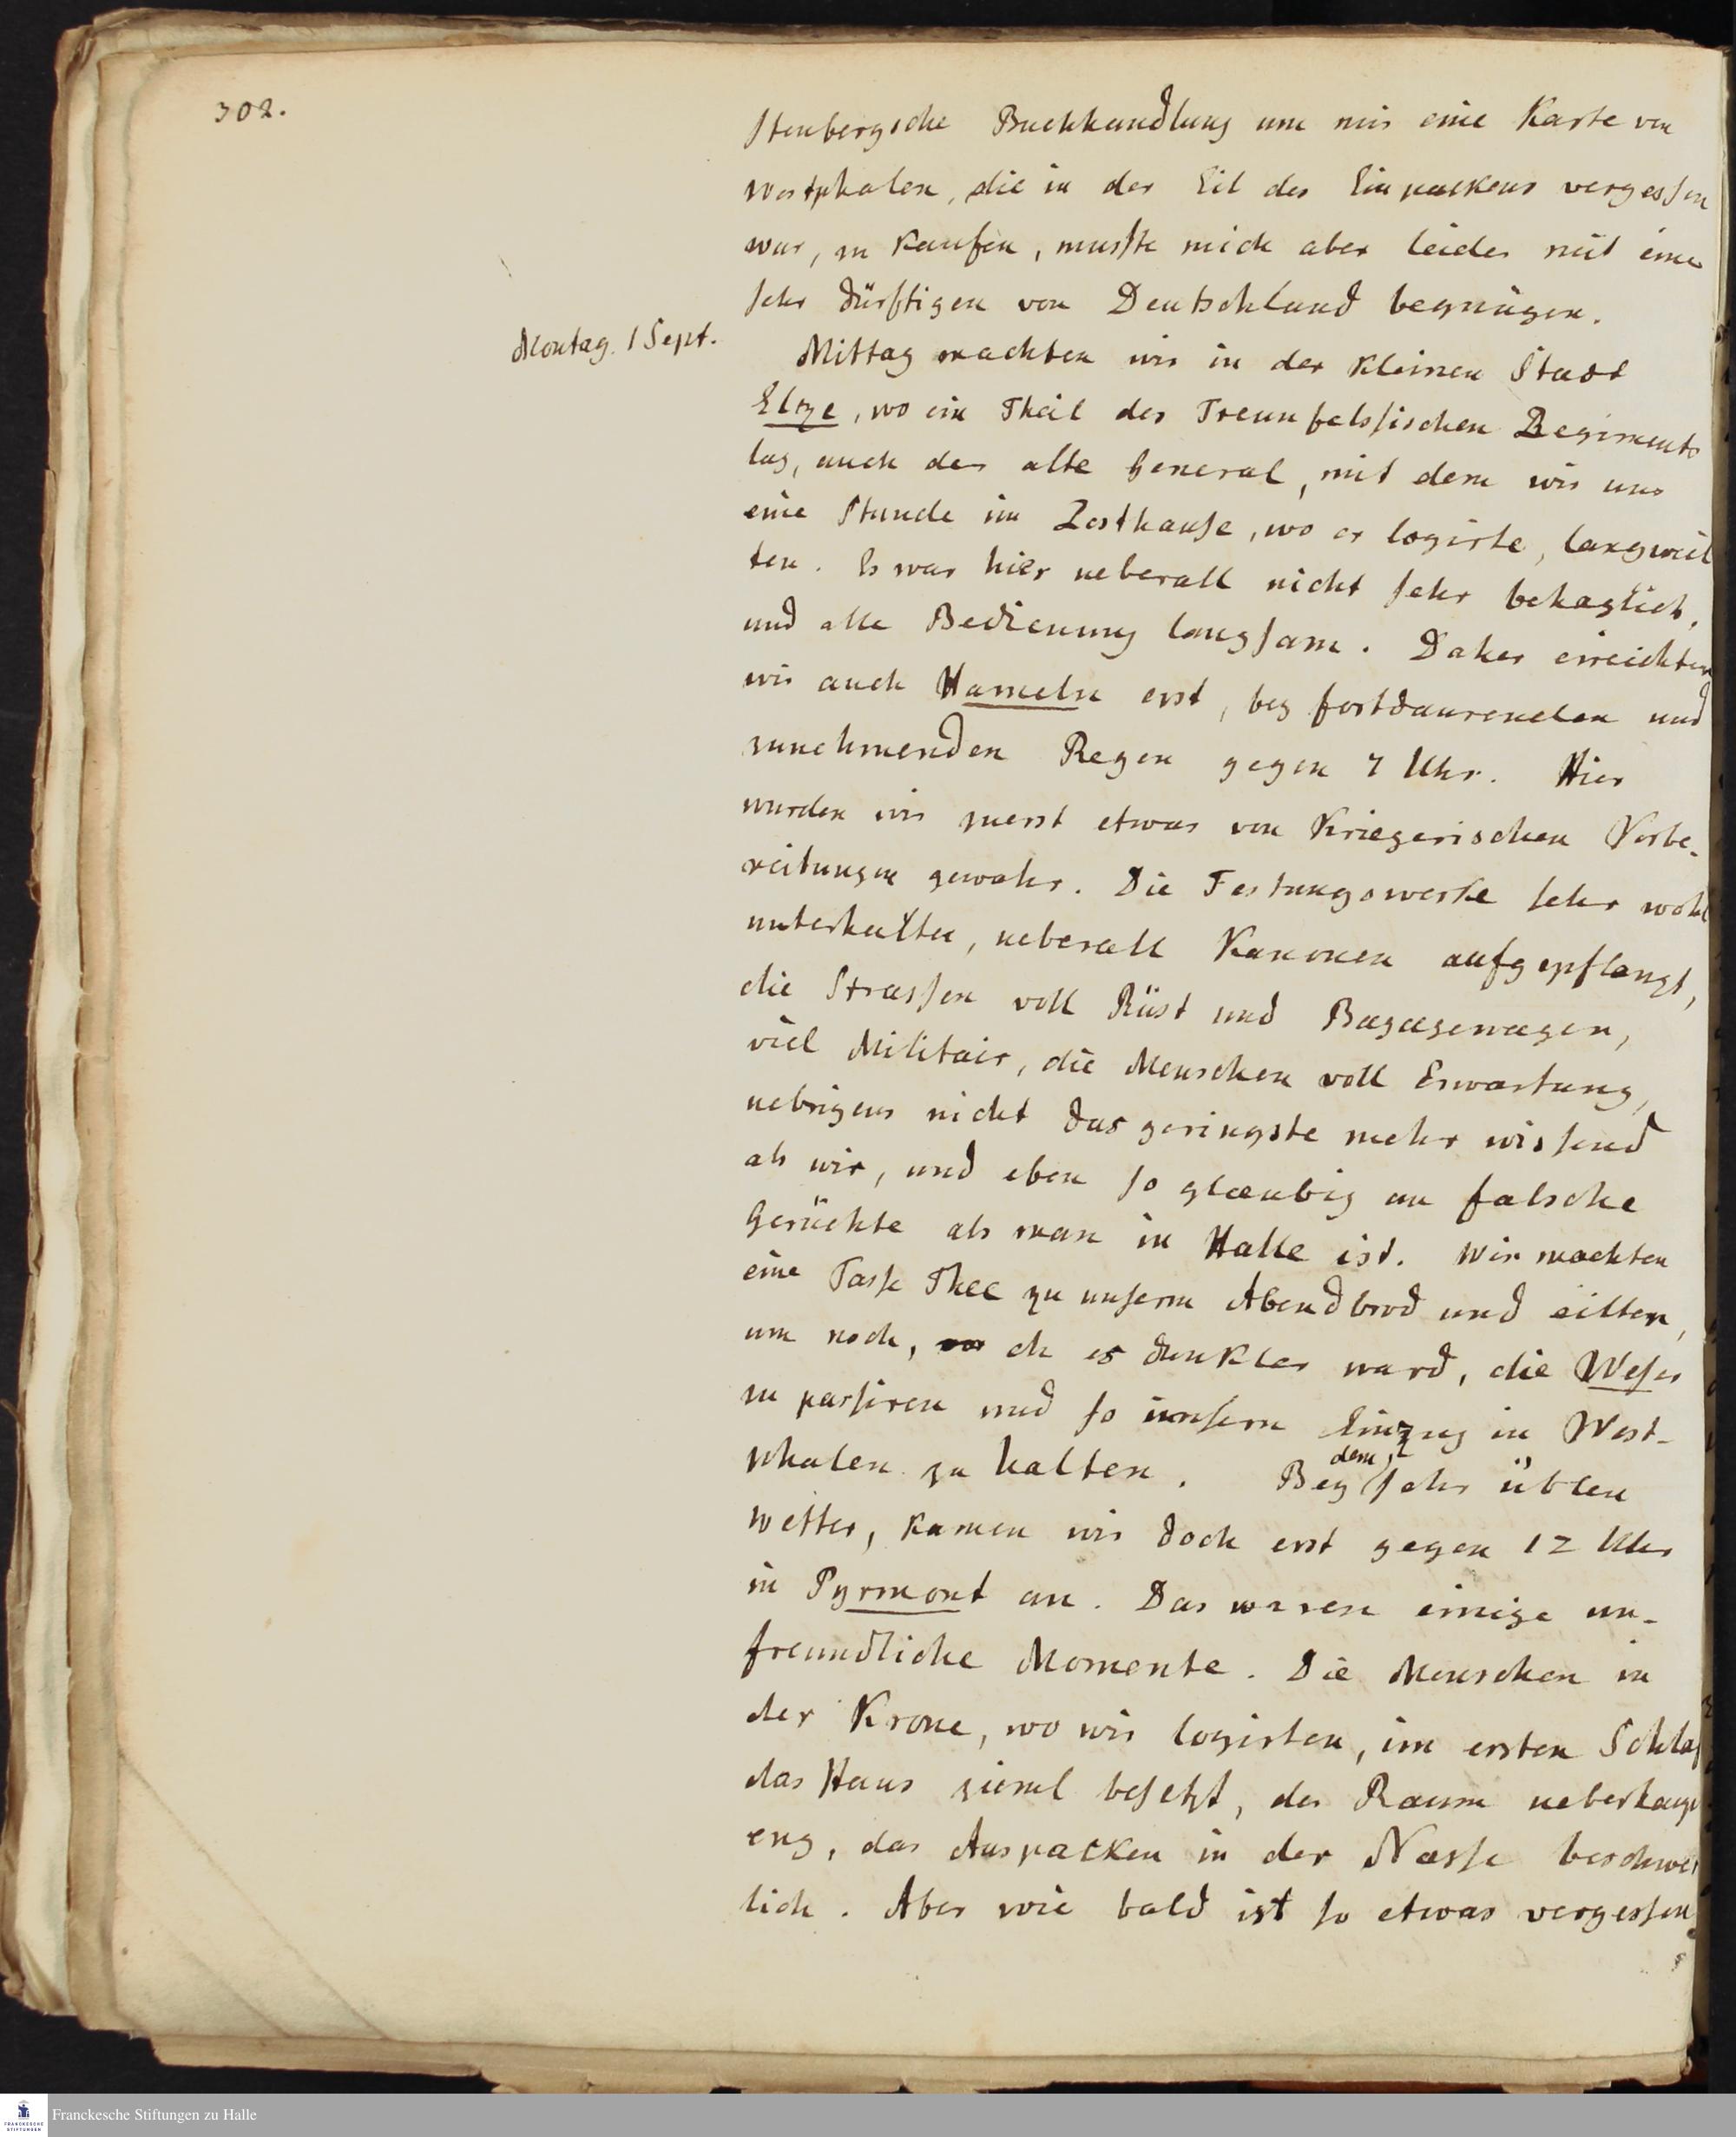 302.
stenbergsche Buchhandlung um mir eine Karte von
Westphalen, die in der Eil des Einpackens vergessen
war, zu kaufen, musste mich aber leider mit einer
sehr dürftigen von Deutschland begnügen.
Montag. 1 Sept.
Mittag machten wir in der kleinen Stadt
Eltze, wo ein Theil des Treuenfelsischen Regiments
lag, auch der alte General, mit dem wir uns
eine Stunde im Posthause, wo er logirte, langweil
ten. Es war hier ueberall nicht sehr behaglich,
und alle Bedienung langsam. Daher erreichten
wir auch Hameln erst, bey fortdaurenden und
zunehmenden Regen gegen 7 Uhr. Hier
wurden wir zuerst etwas von kriegerischen Vorbe-
reitungen gewahr. Die Festungswerke sehr wohl
unterhalten, ueberall Kanonen aufgepflanzt,
die Strassen voll Rüst und Bagagewagen,
viel Militair, die Menschen voll Erwartung,
uebrigens nicht das geringste mehr wissend
als wir, und eben so glaeubig an falsche
Gerüchte als man in Halle ist. Wir machten
eine Tasse Thee zu unserm Abendbrod und eilten,
um noch, eh es dunkler ward, die Weser
zu passiren und so unsern Einzug in West-
phalen zu halten. Bey dem sehr üblen
Wetter, kamen wir doch erst gegen 12 Uhr
in Pyrmont an. Das waren einige un-
freundliche Momente. Die Menschen in
der Krone, wo wir logirten, im ersten Schlaf
das Haus zieml besetzt, der Raum ueberhaupt
eng, das Auspacken in der Nässe beschwer
lich. Aber wie bald ist so etwas vergessen.
Franckesche Stiftungen zu Halle
FRANCKESCHE
STIFTUNGEN